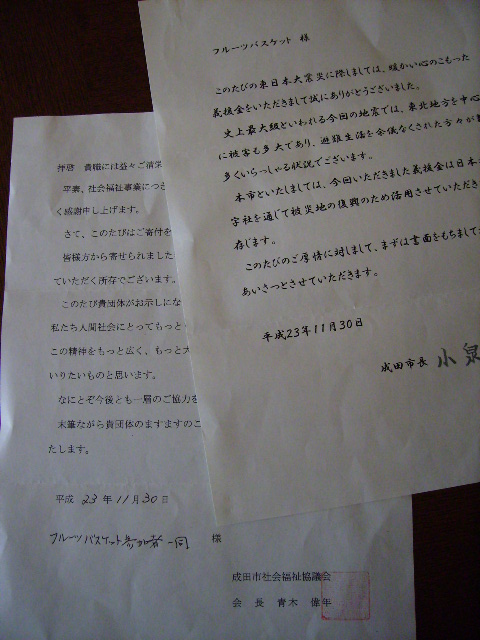 フルーツバスケット 様
このたびの東日本大震災に際しましては、暖かい心のこもった
義援金をいただきまして誠にありがとうございました。
史上最大級といわれる今回の地震では、東北地方を中心
に被害も多大であり、避難生活を余儀なくされた方々が
多くいらっしゃる状況でございます。
本市といたしましては、今回いただきました義援金は日本
字社を通じて被災地の復興のため活用させていただき
存じます。
このたびのご厚情に対しまして、まずは書面をもちまして
あいさつとさせていただきます。
平成23年11月30日
成田市長 小泉
拝啓 貴職には益々ご清栄
平素、社会福祉事業につき
く感謝申し上げます。
さて、このたびはご寄付を
皆様方から寄せられました
ていただく所存でございます。
このたび貴団体がお示しにな
私たち人間社会にとってもっと
この精神をもっと広く、もっと大
いりたいものと思います。
なにとぞ今後とも一層のご協力を
末筆ながら貴団体のますますのご
たします。
平成 23 年 11 月 30 日
フルーツバスケット参加者一同 様
成田市社会福祉協議会
会 長 青木 偉年